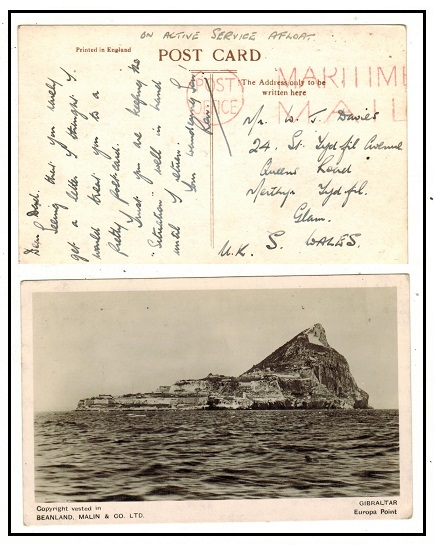 ON ACTIVE SERVICE AFLOAT.
Printed in England
POST CARD
The Address only to be
written here
POST
OFFICE
MARITIME
MAIL
Dear Dad,
Seeing that you rarely
get a letter I thought I
would treat you to a
pretty postcard.
Trust you are keeping the
"Situation" well in hand
until I return.
Your wandering Son
Ken
Mr. W. J. Davies
24. St. Tydfil Avenue
Queens Road
Merthyr Tydfil.
Glam.
U.K. S. WALES.
Copyright vested in
BEANLAND, MALIN & CO. LTD.
GIBRALTAR
Europa Point